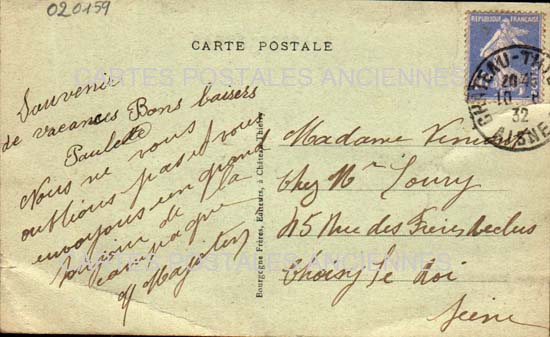 020159
CARTE POSTALE
REPUBLIQUE FRANÇAISE
CHATEAU-THI
20 45
10
32
AISNE
CARTES POSTALES ANCIENNES
Souvenir
de vacances Bons baisers
Paulette
Nous ne vous
oublions pas et vous
envoyons un grand
bonjour de la
campagne
Bourgogne Frères, Editeurs, à Château-Thierry
Madame
Chez Mr Loury
15 Rue des Frères Reclus
Choisy le Roi
Seine
CARTES POSTALES ANCIENNES